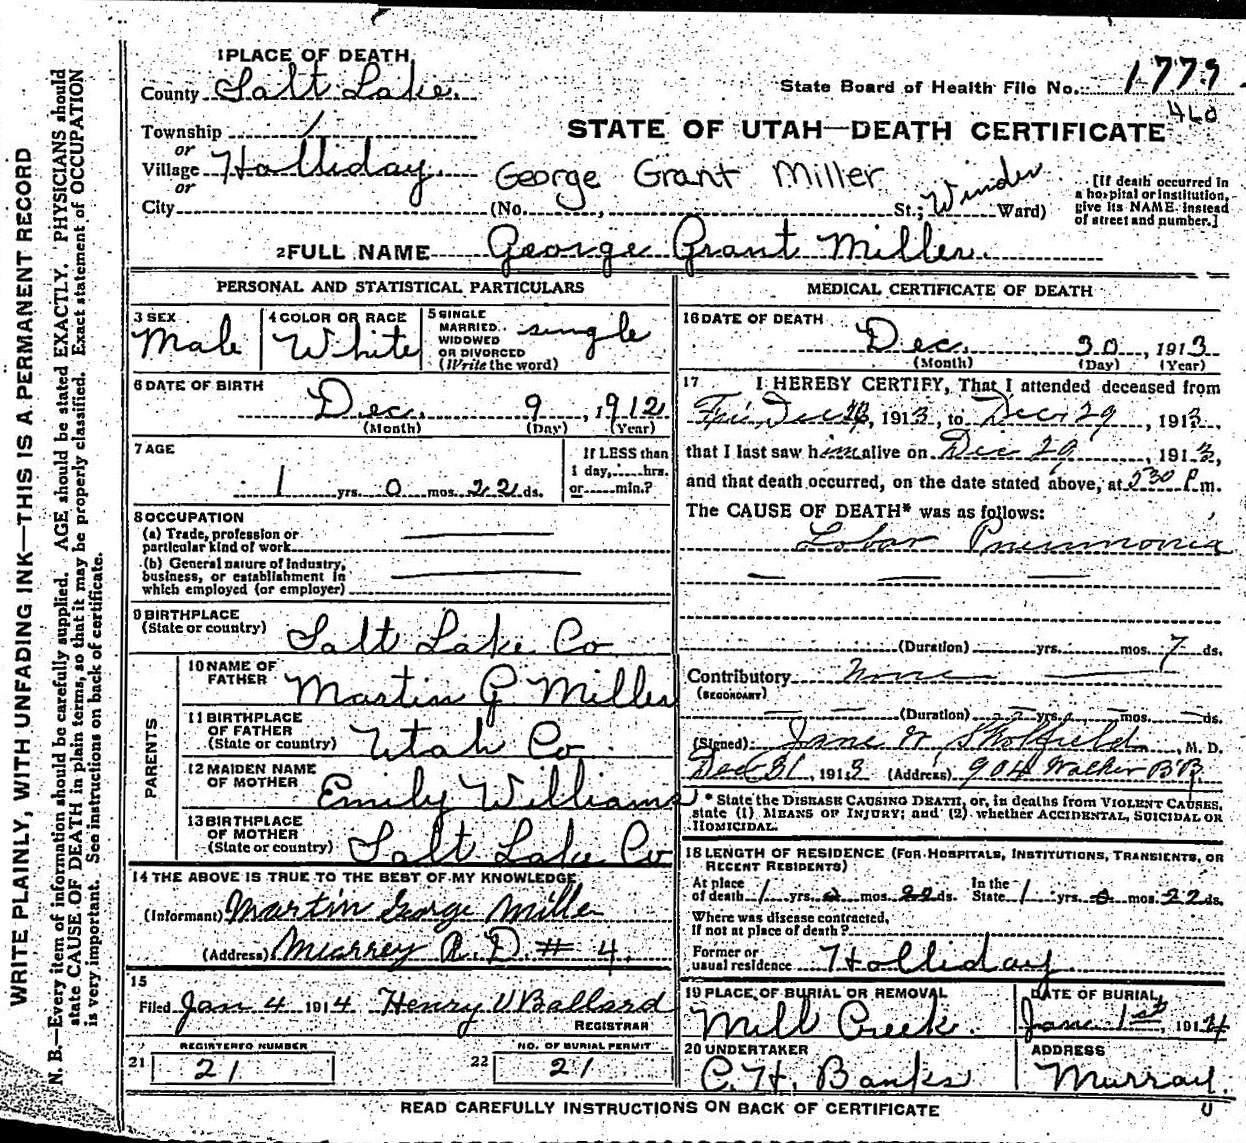 WRITE PLAINLY, WITH UNFADING INK—THIS IS A PERMANENT RECORD
N. B.—Every item of information should be carefully supplied. AGE should be stated EXACTLY. PHYSICIANS should
state CAUSE OF DEATH in plain terms, so that it may be properly classified. Exact statement of OCCUPATION
is very important. See instructions on back of certificate.
1 PLACE OF DEATH
County Salt Lake
State Board of Health File No. 1779
460
Township /
or
STATE OF UTAH—DEATH CERTIFICATE
Village Holliday
or
George Grant Miller
City (No. , St.; Winder Ward)
[If death occurred in
a hospital or institution,
give its NAME instead
of street and number.]
2 FULL NAME George Grant Miller
PERSONAL AND STATISTICAL PARTICULARS
3 SEX
Male
4 COLOR OR RACE
White
5 SINGLE
MARRIED
WIDOWED
OR DIVORCED
(Write the word)
single
6 DATE OF BIRTH
Dec. 9, 1912
(Month) (Day) (Year)
7 AGE
1 yrs. 0 mos. 22 ds.
If LESS than
1 day, hrs.
or min.?
8 OCCUPATION
(a) Trade, profession or
particular kind of work
(b) General nature of industry,
business, or establishment in
which employed (or employer)
9 BIRTHPLACE
(State or country) Salt Lake Co
PARENTS
10 NAME OF
FATHER Martin G Miller
11 BIRTHPLACE
OF FATHER
(State or country) Utah Co.
12 MAIDEN NAME
OF MOTHER Emily Williams
13 BIRTHPLACE
OF MOTHER
(State or country) Salt Lake Co
14 THE ABOVE IS TRUE TO THE BEST OF MY KNOWLEDGE
(Informant) Martin George Miller
(Address) Murrey R. D. # 4.
15
Filed Jan 4 1914 Henry V Ballard
REGISTRAR
REGISTERED NUMBER
21 21
NO. OF BURIAL PERMIT
22 21
MEDICAL CERTIFICATE OF DEATH
16 DATE OF DEATH
Dec. 30, 1913
(Month) (Day) (Year)
17 I HEREBY CERTIFY, That I attended deceased from
Dec , 1913, to Dec 29, 1913,
that I last saw him alive on Dec 29, 1913,
and that death occurred, on the date stated above, at 2 30 P. m.
The CAUSE OF DEATH* was as follows:
Lobar Pneumonia
(Duration) yrs. mos. 7 ds.
Contributory None
(SECONDARY)
(Duration) yrs. mos. ds.
(Signed) Jane W Skolfield, M. D.
Dec 31, 1913 (Address) 904 Walker
* State the DISEASE CAUSING DEATH, or, in deaths from VIOLENT CAUSES,
state (1) MEANS OF INJURY; and (2) whether ACCIDENTAL, SUICIDAL OR
HOMICIDAL.
18 LENGTH OF RESIDENCE (FOR HOSPITALS, INSTITUTIONS, TRANSIENTS, OR
RECENT RESIDENTS)
At place
of death 1 yrs. 0 mos. 22 ds.
In the
State 1 yrs. 0 mos. 22 ds.
Where was disease contracted,
if not at place of death?
Former or
usual residence Holliday
19 PLACE OF BURIAL OR REMOVAL
Mill Creek.
DATE OF BURIAL
Jan. 1st, 1914
20 UNDERTAKER
C. H. Banks
ADDRESS
Murray.
READ CAREFULLY INSTRUCTIONS ON BACK OF CERTIFICATE